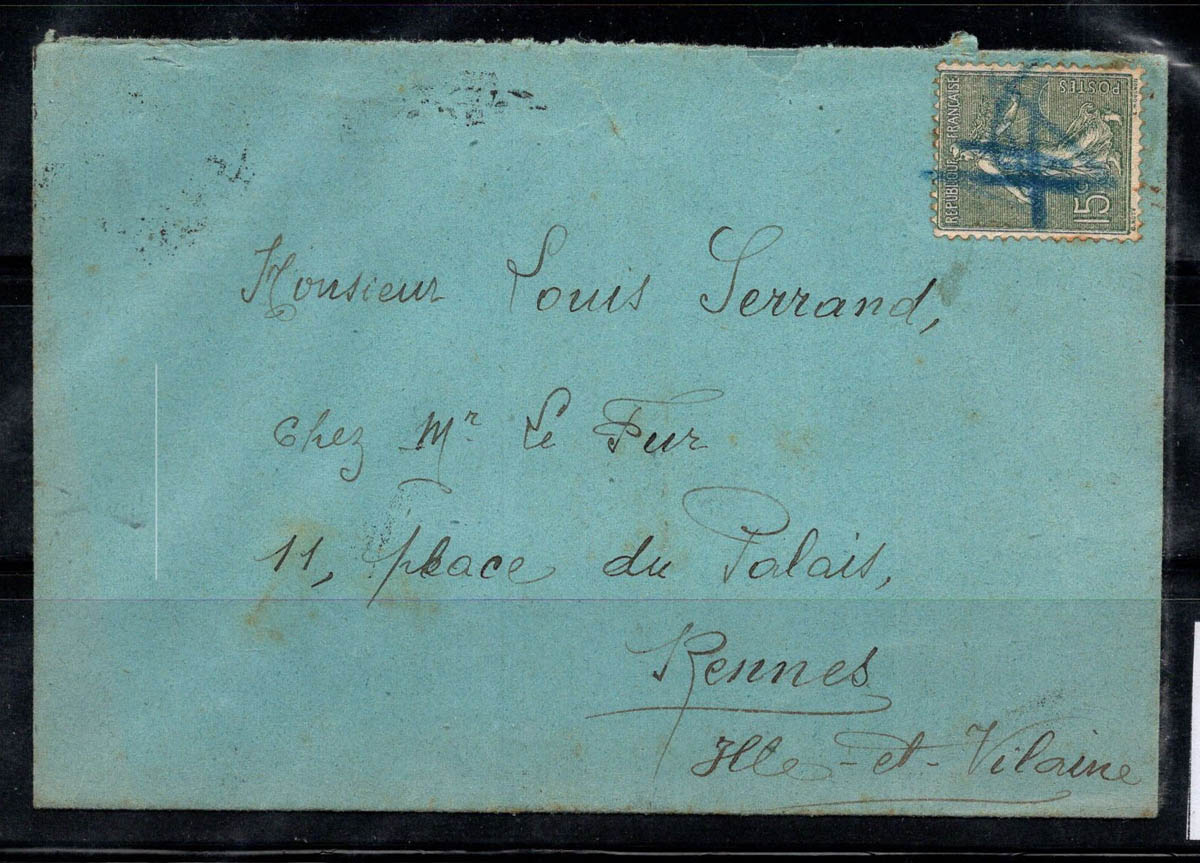 REPUBLIQUE FRANÇAISE
POSTES
15c
Monsieur Louis Serrand,
chez Mr. Le Fur
11, place du Palais,
Rennes
Ille-et-Vilaine